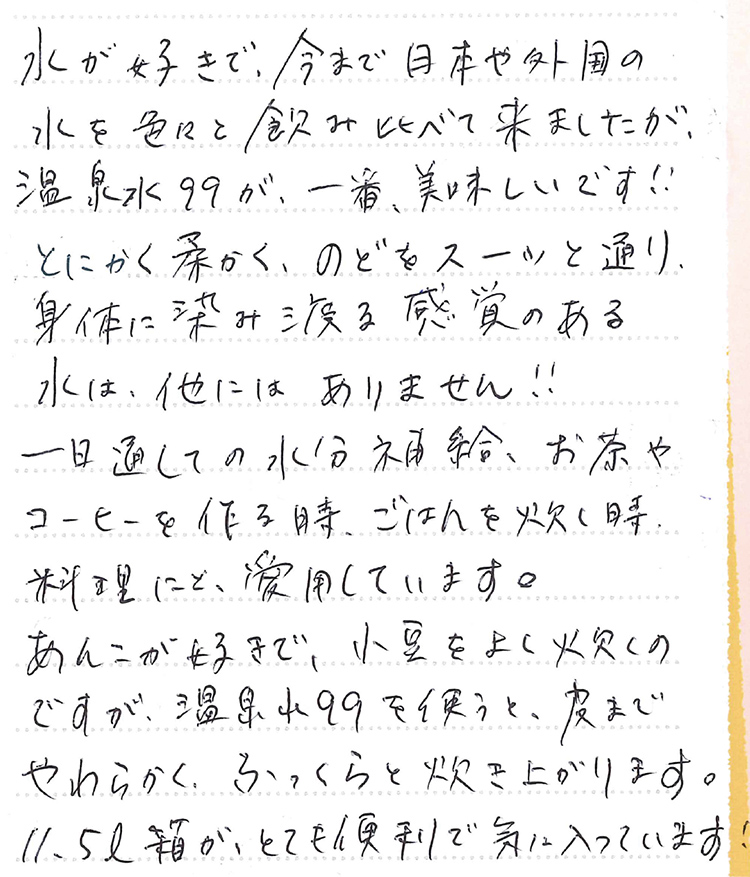 水が好きで、今まで日本や外国の
水を色々と飲み比べて来ましたが、
温泉水99が、一番、美味しいです!!
とにかく柔かく、のどをスーッと通り、
身体に染み渡る感覚のある
水は、他には ありません!!
一日通しての水分補給、お茶や
コーヒーを作る時、ごはんを炊く時、
料理にと、愛用しています。
あんこが好きで、小豆をよく炊くの
ですが、温泉水99を使うと、皮まで
やわらかく、ふっくらと炊き上がります。
11.5ℓ箱が、とても便利で気に入っています!